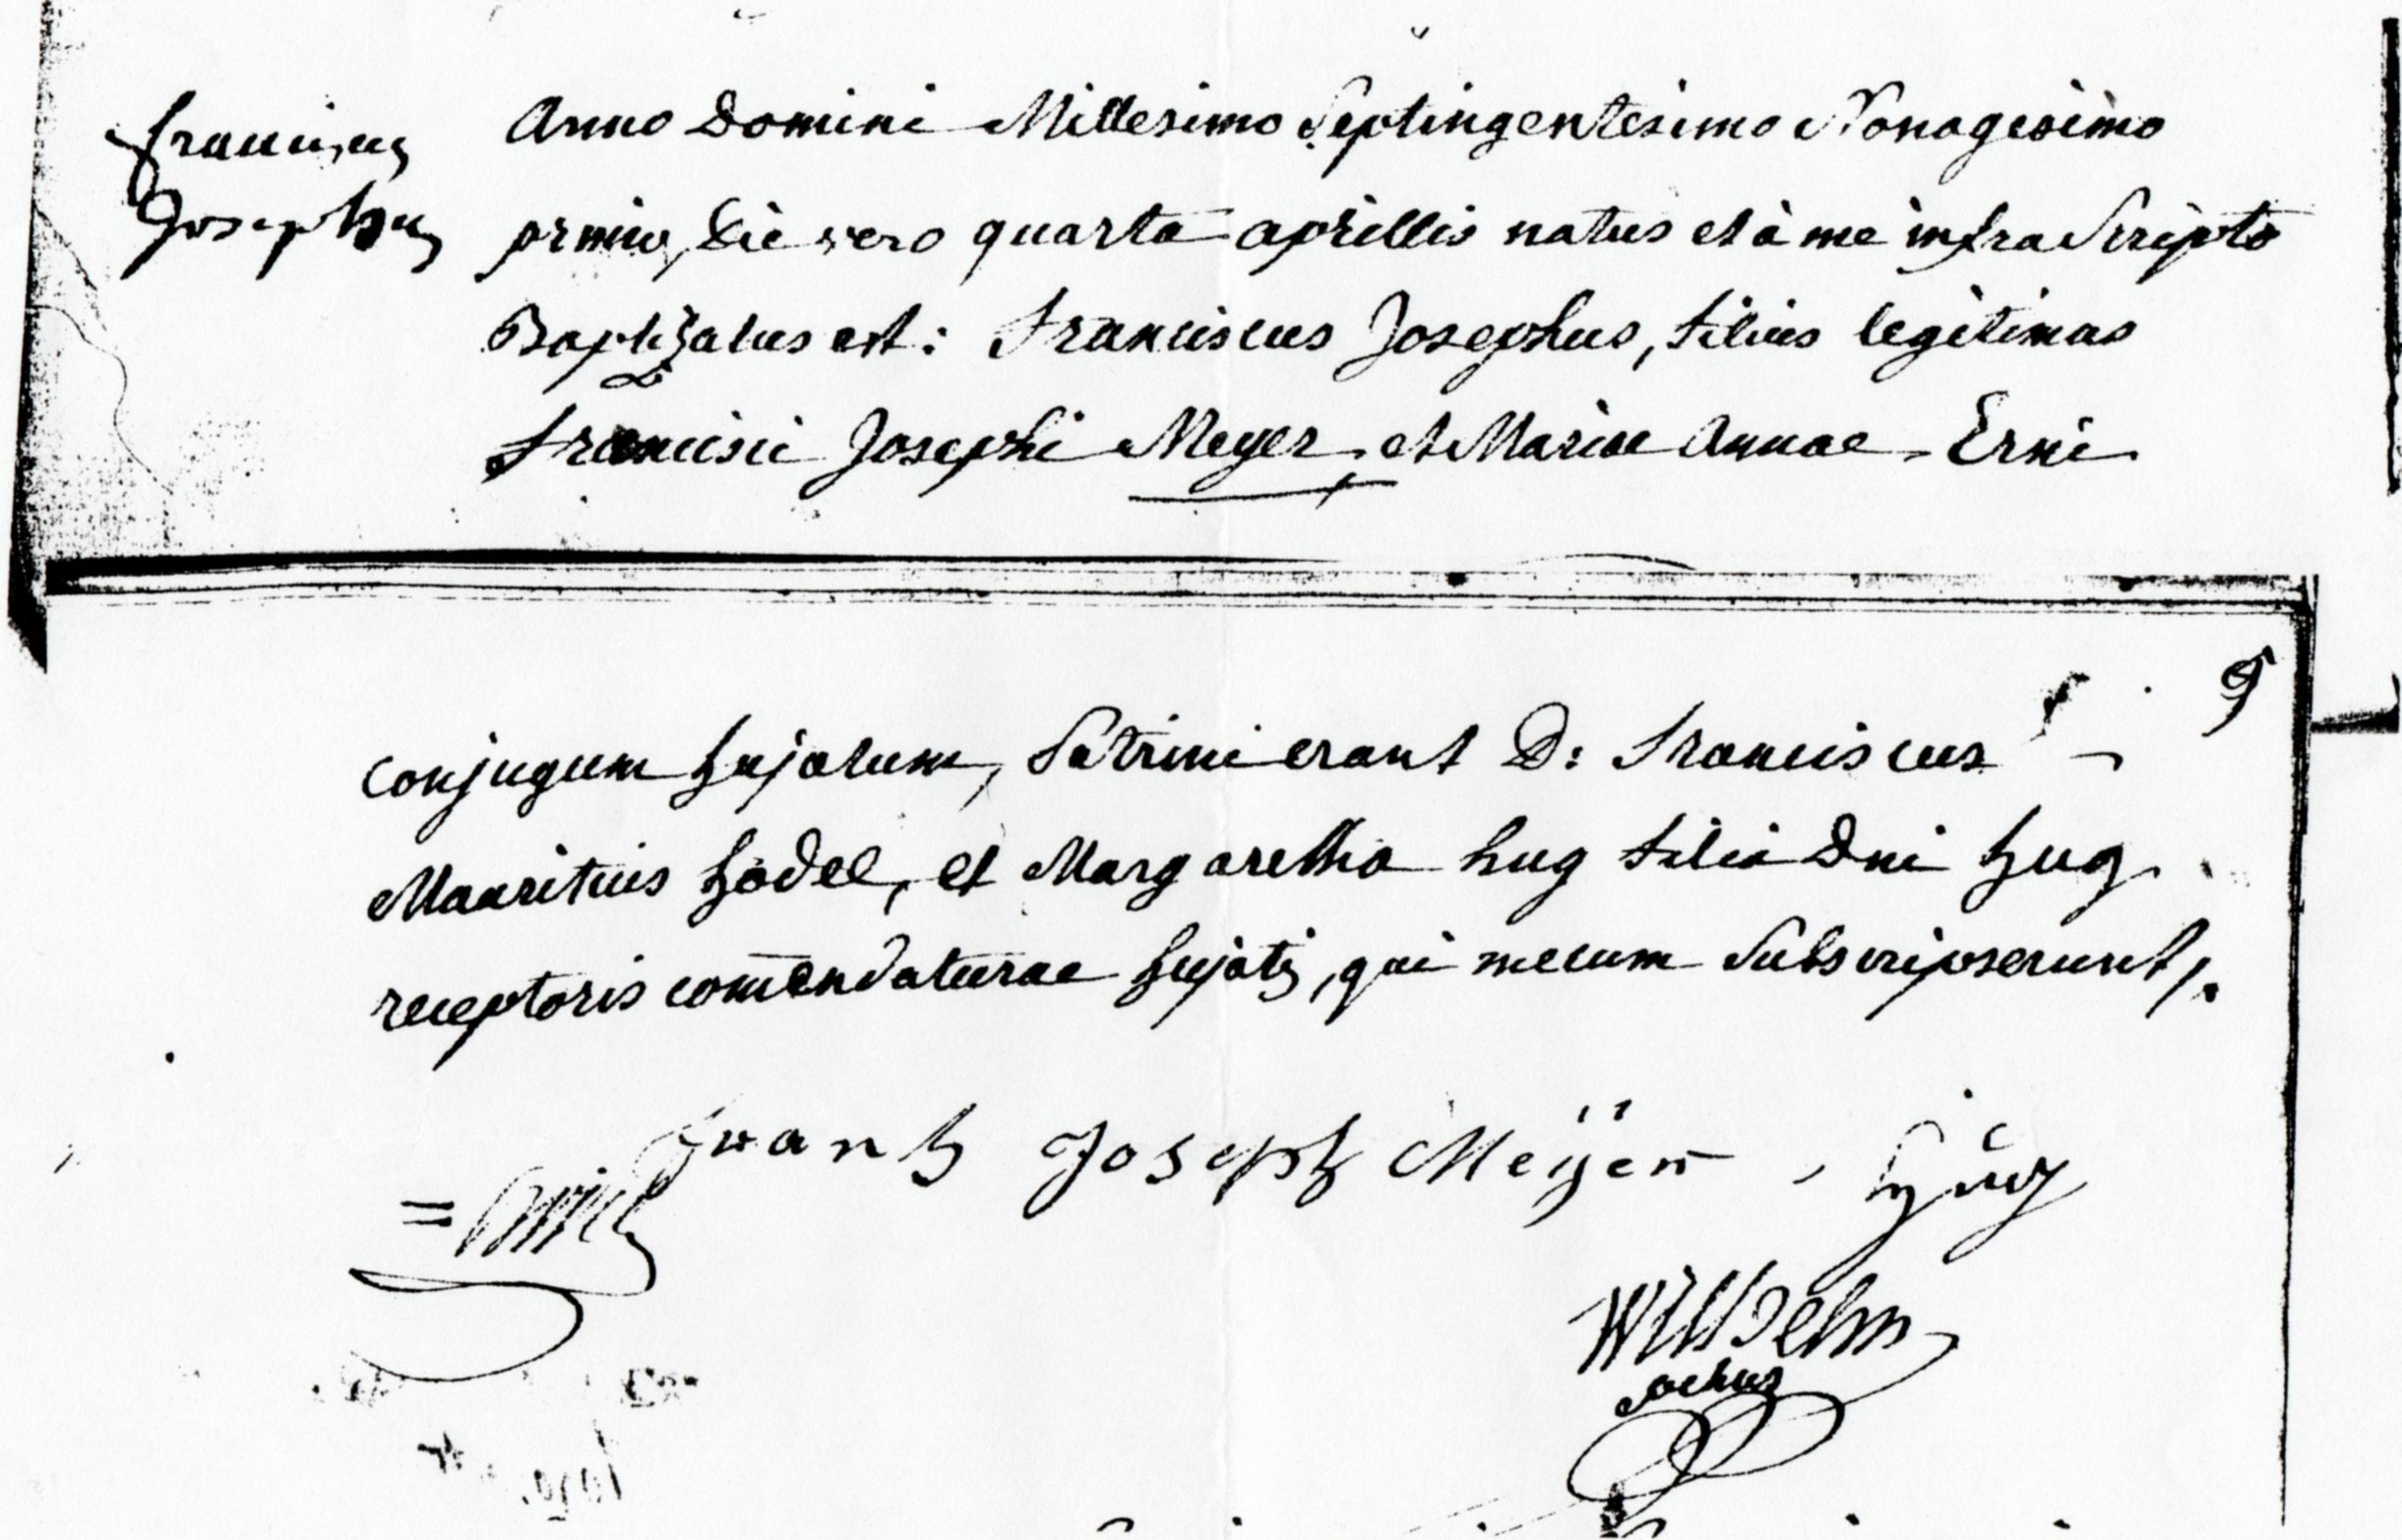 Franciscus
Josephus
Anno Domini Millesimo Septingentesimo Nonagesimo
primo, Die vero quarta aprillis natus et à me infra Scripto
Baptizatus est: Franciscus Josephus, filius legitimus
Francisci Josephi Meyer, et Mariae Annae Erni
9
conjugum hujatum, Patrini erant D: Franciscus
Mauritius hödel, et Margaretha hug filia Dni hug
receptoris com̄endaturae hujatis, qui mecum Subscripserunt,.
Frantz Joseph Meÿer, Hŭg
Wilhelm